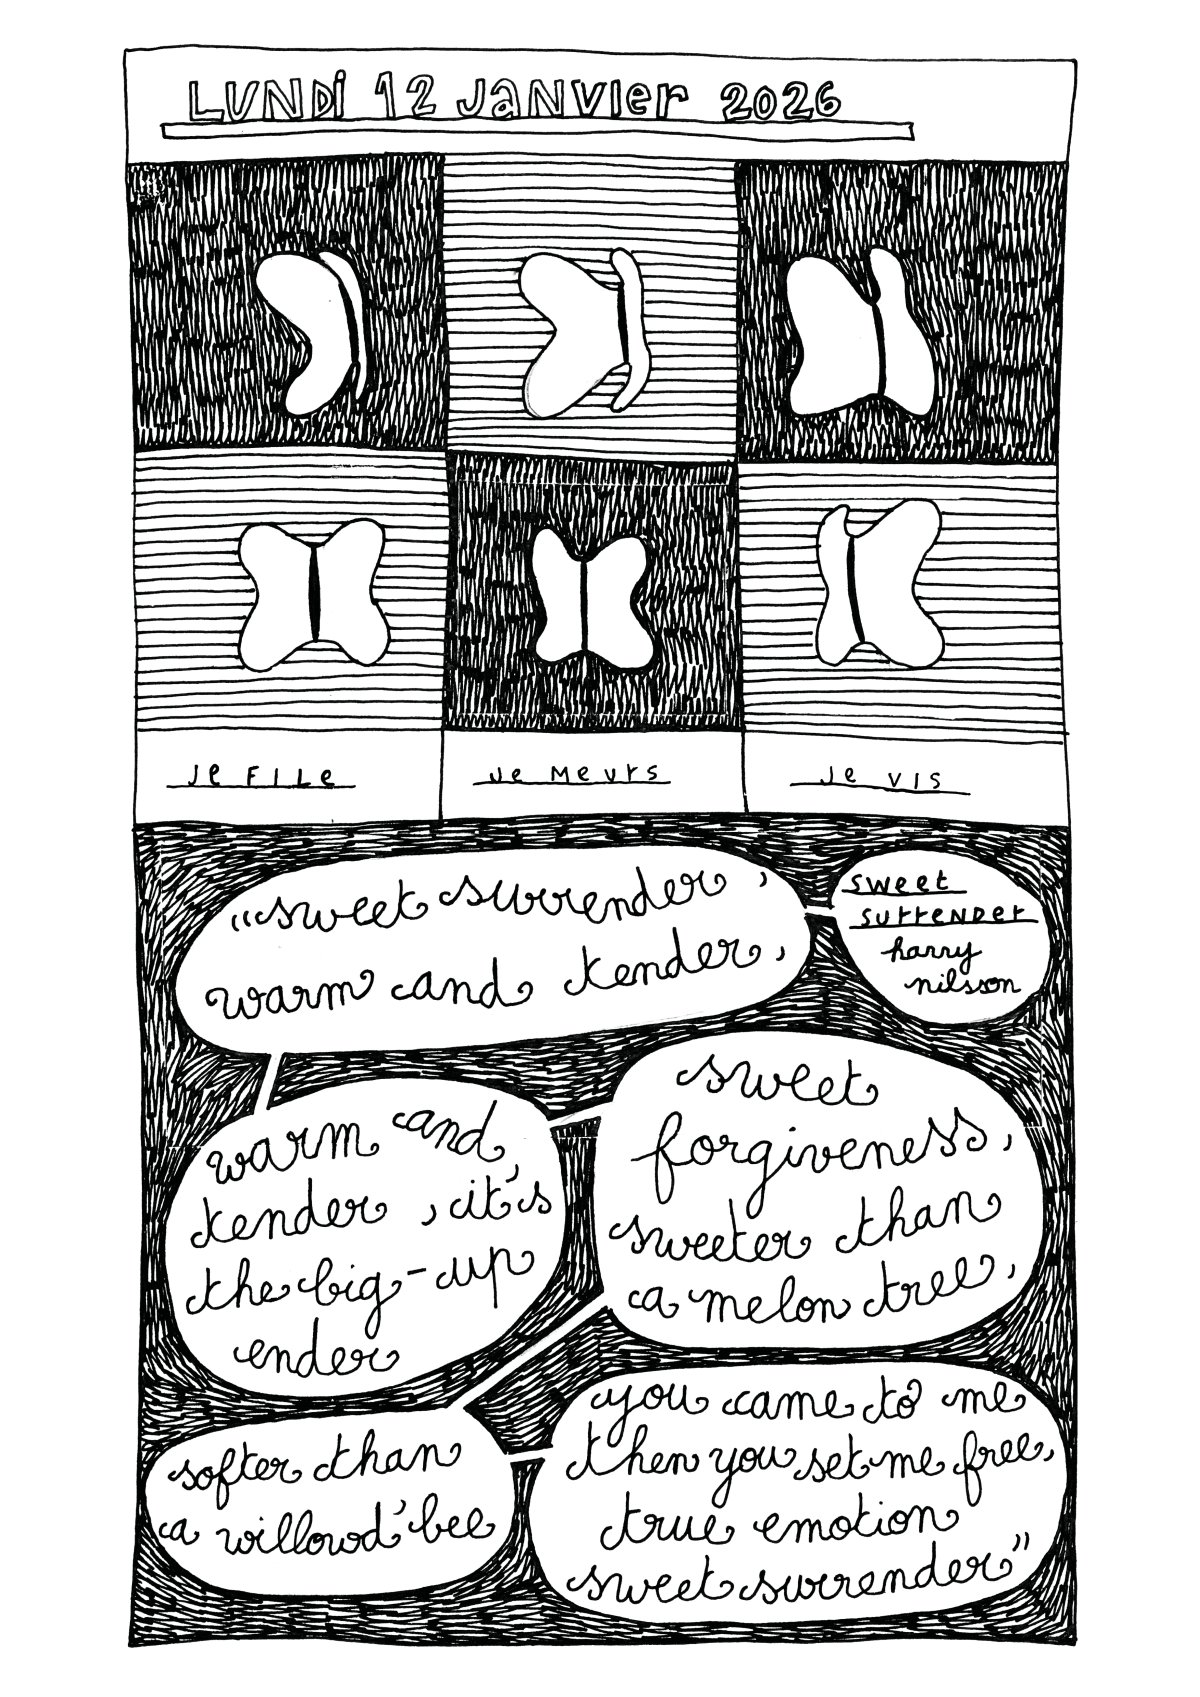 LUNDi 12 JaNVIer 2026
Je FILe
Je Meurs
Je VIS
“sweet surrender,
warm and tender,
sweet
surrender
harry
nilsson
warm and
tender, it's
the big-up
ender
sweet
forgiveness,
sweeter than
a melon tree,
softer than
a willowd'bee
you came to me
then you set me free,
true emotion
sweet surrender”